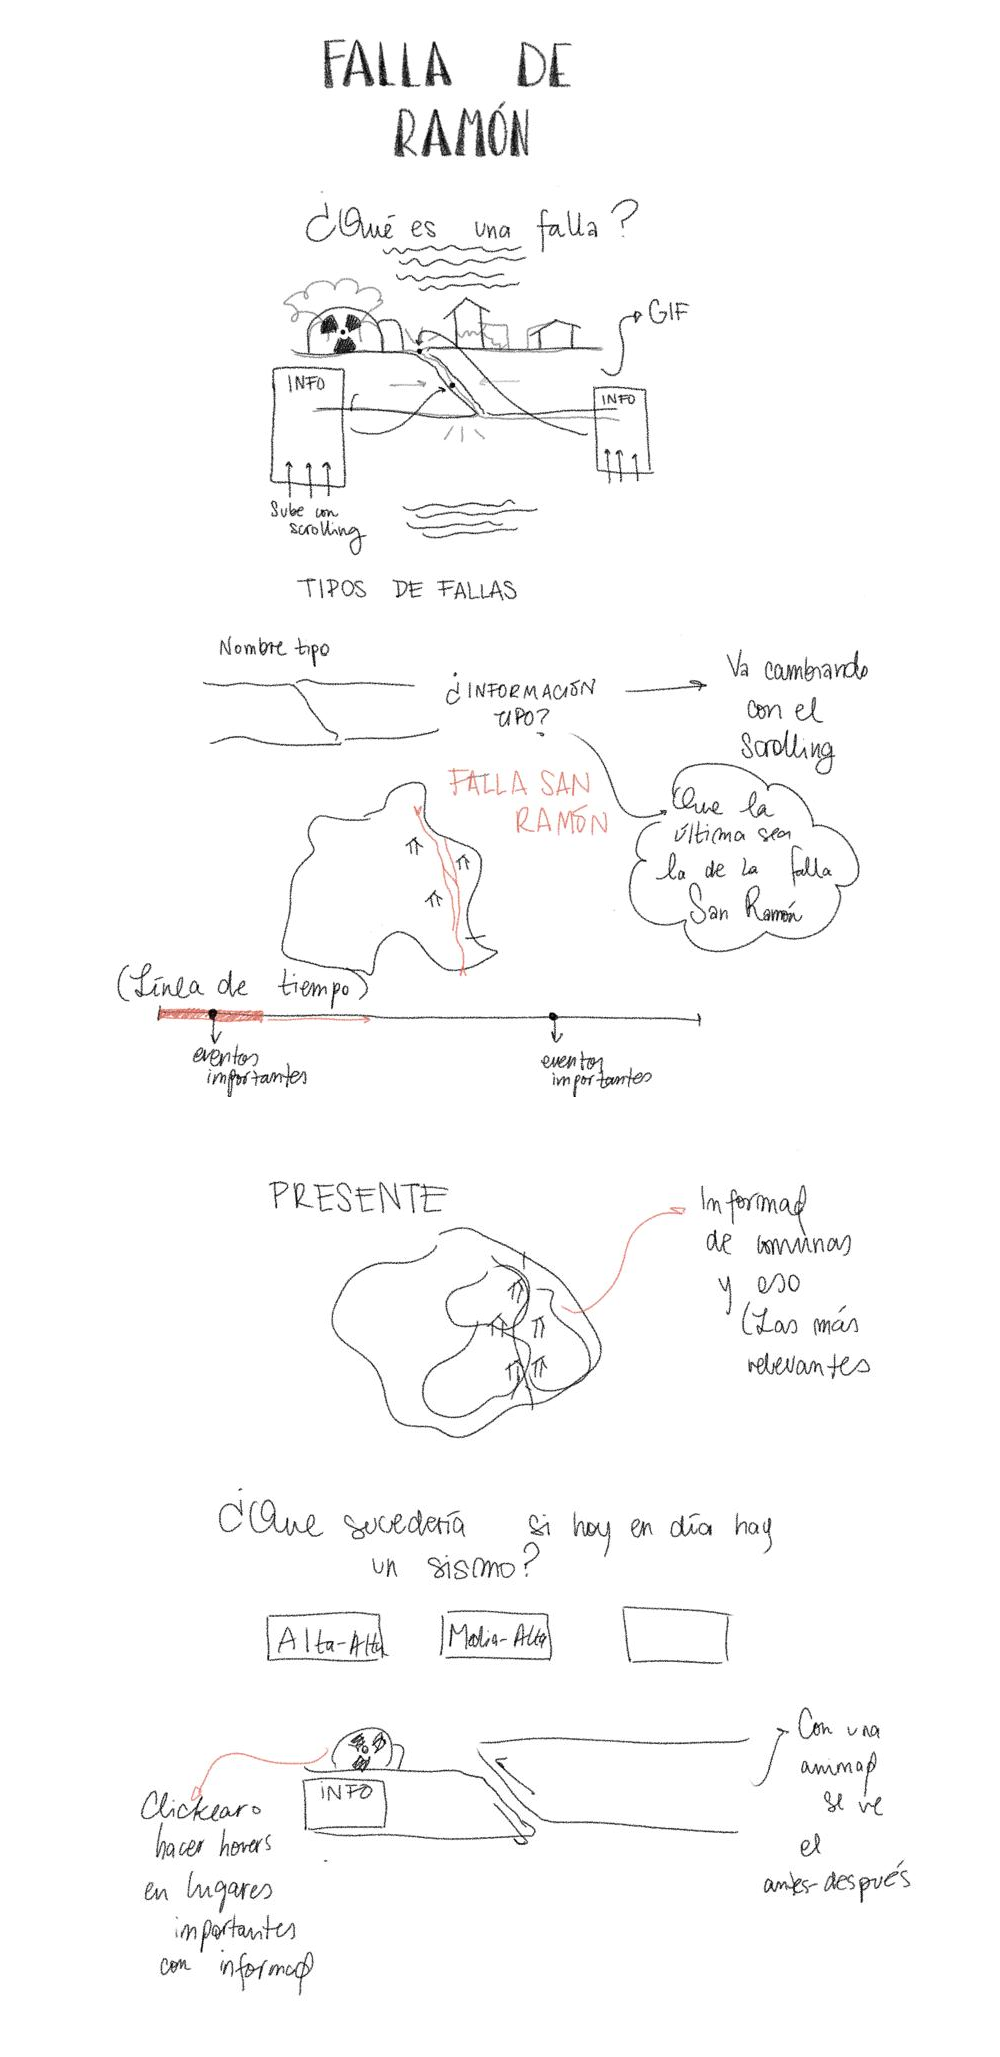 FALLA DE
RAMÓN
¿Qué es una falla?
GIF
INFO
INFO
Sube con
scrolling
TIPOS DE FALLAS
Nombre tipo
¿INFORMACIÓN
TIPO?
Va cambiando
con el
Scrolling
FALLA SAN
RAMÓN
Que la
última sea
la de la falla
San Ramón
(Línea de tiempo)
eventos
importantes
eventos
importantes
PRESENTE
Informaq
de comunas
y eso
(Las más
relevantes
¿Que sucedería si hoy en día hay
un sismo?
Alta-Alta
Media-Alta
INFO
Clickear o
hacer hovers
en lugares
importantes
con informaq
Con una
animaq
se ve
el
antes-después